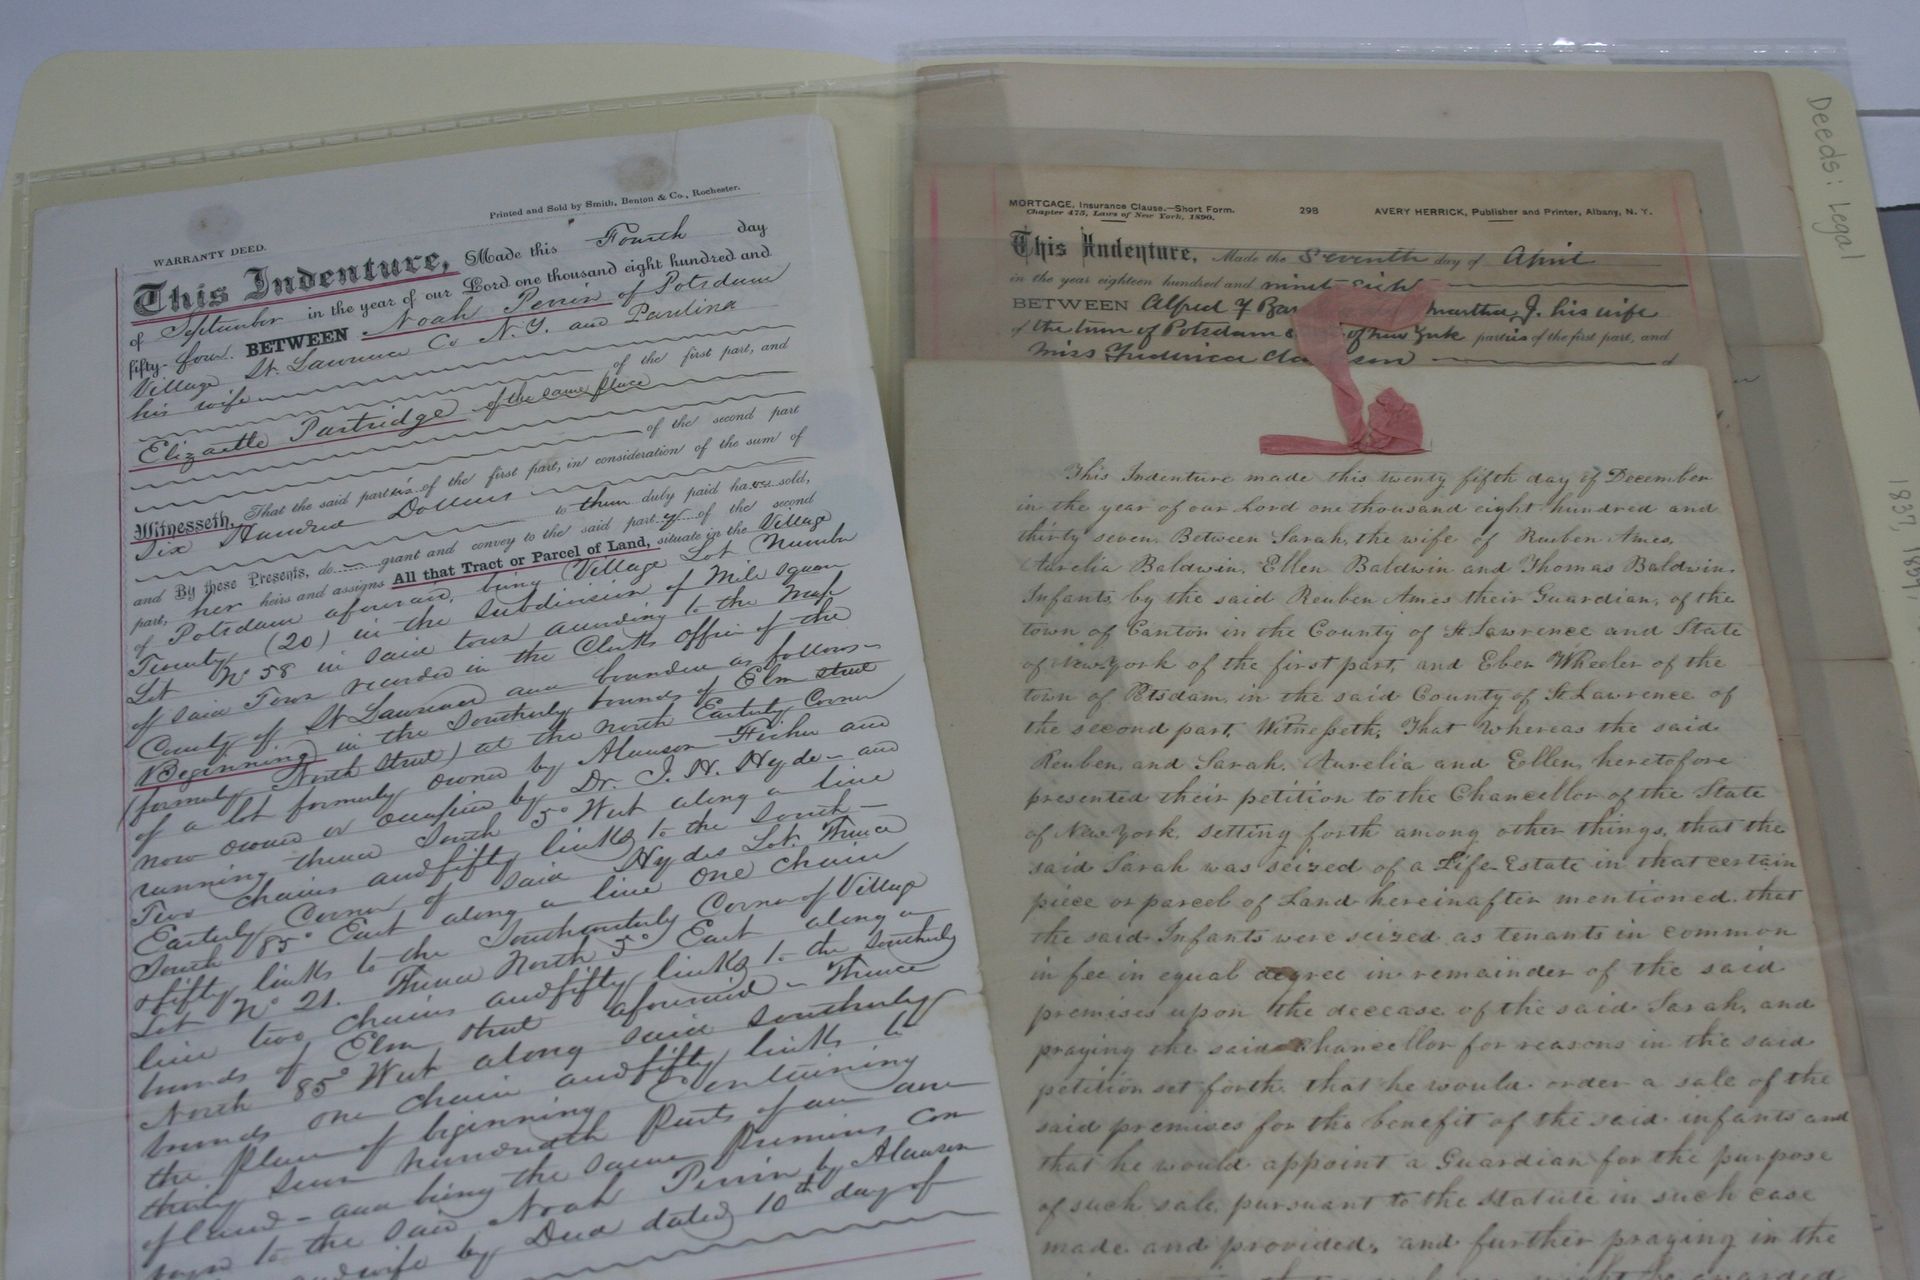 Printed and Sold by Smith, Benton & Co., Rochester.
WARRANTY DEED.
This Indenture, Made this Fourth day
of September in the year of our Lord one thousand eight hundred and
fifty-four. BETWEEN Noah Perrin of Potsdam
Village St. Lawrence Co N.Y. and Paulina
his wife
of the first part, and
Elizaette Partridge of the same place
of the second part
Witnesseth, That the said parties of the first part, in consideration of the sum of
Six Hundred Dollars
to them duly paid have sold,
and By these Presents, do grant and convey to the said party of the second
part, her heirs and assigns All that Tract or Parcel of Land, situate in the Village
of Potsdam aforesaid, being Village Lot Number
Twenty (20) in the subdivision of Mile square
Lot No 58 in said town according to the Map
of said Town recorded in the Clerks office of the
County of St Lawrence and bounded as follows-
Beginning in the Southerly bounds of Elm street
(formerly North street) at the north Easterly Corner
of a lot formerly owned by Alanson Fisher and
now owned or occupied by Dr. J. H. Hyde - and
running thence South 5° West along a line
Two chains and fifty links to the South-
Easterly Corner of said Hydes Lot. Thence
South 85° East along a line one chain
& fifty links to the Southwesterly Corner of Village
Lot No 21. Thence North 5° East along a
line two chains and fifty links to the Southerly
bounds of Elm street aforesaid - Thence
North 85° West along said southerly
bounds one chain and fifty links to
the place of beginning Containing
thirty seven hundredth parts of an acre
of land - and being the same premises con
veyed to the said Noah Perrin by Alanson
and wife by Deed dated 10th day of
Deeds: Legal
1837, 1854,
MORTGAGE, Insurance Clause.—Short Form.
Chapter 475, Laws of New York, 1890.
298
AVERY HERRICK, Publisher and Printer, Albany, N. Y.
This Indenture, Made the Seventh day of April
in the year eighteen hundred and ninety eight
BETWEEN Alfred Martha J. his wife
of the town of Potsdam of New York parties of the first part, and
Miss Frederica
This Indenture made this twenty fifth day of December
in the year of our Lord one thousand eight hundred and
thirty seven. Between Sarah, the wife of Reuben Ames,
Aurelia Baldwin, Ellen Baldwin and Thomas Baldwin,
Infants, by the said Reuben Ames their Guardian, of the
town of Canton in the County of St. Lawrence and State
of New York of the first part, and Eben Wheeler of the
town of Potsdam, in the said County of St. Lawrence of
the second part, Witnesseth, That Whereas the said
Reuben, and Sarah, Aurelia and Ellen, heretofore
presented their petition to the Chancellor of the State
of New York, setting forth among other things, that the
said Sarah was seized of a Life-Estate in that certain
piece or parcel of Land hereinafter mentioned, that
the said Infants were seized as tenants in common
in fee in equal degree in remainder of the said
premises upon the decease of the said Sarah, and
praying the said Chancellor for reasons in the said
petition set forth, that he would order a sale of the
said premises for the benefit of the said infants and
that he would appoint a Guardian for the purpose
of such sale, pursuant to the Statute in such case
made and provided, and further praying in the